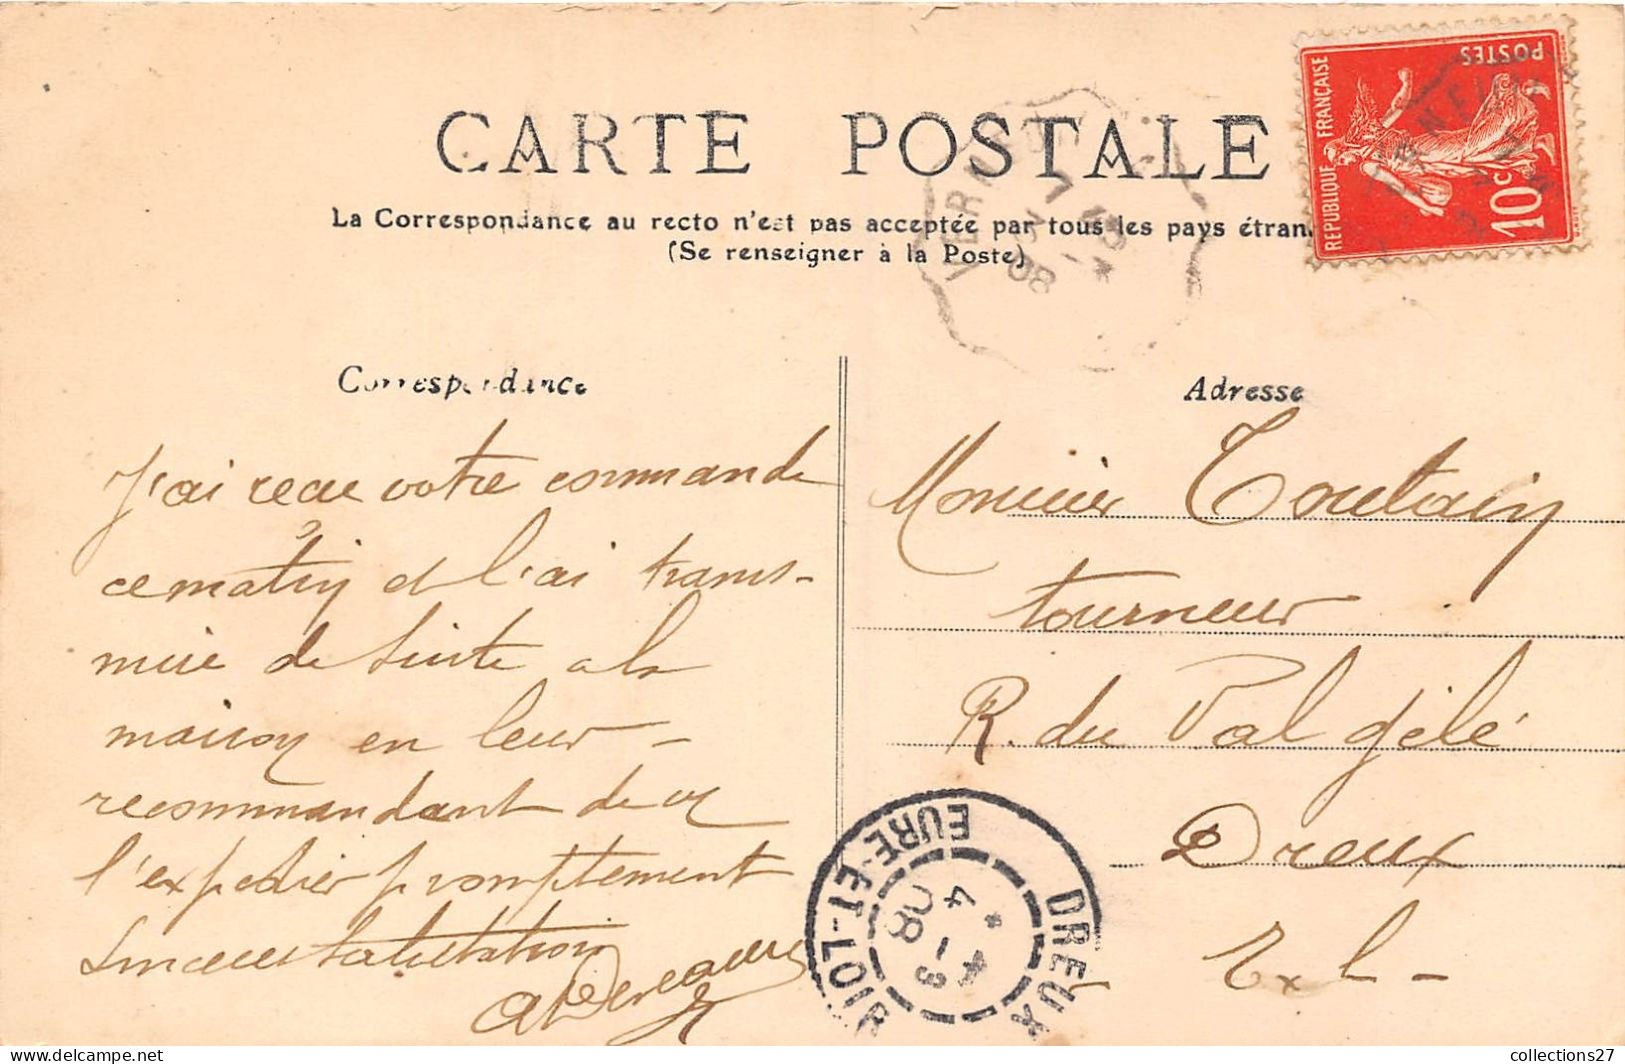 CARTE POSTALE
La Correspondance au recto n'est pas acceptée par tous les pays étran
(Se renseigner à la Poste)
REPUBLIQUE FRANÇAISE
POSTES
10c
VERN
08
Correspondance
Adresse
J'ai recu votre commande
ce matin et l'ai trans-
mise de suite a la
maison en leur
recommandant de
l'expedier promptement
Sinceres salutation
Monsieur Toutain
tourneur
R. du Val gélé
Dreux
E x L -
DREUX
EURE-ET-LOIR
4 - 3
08
collections27